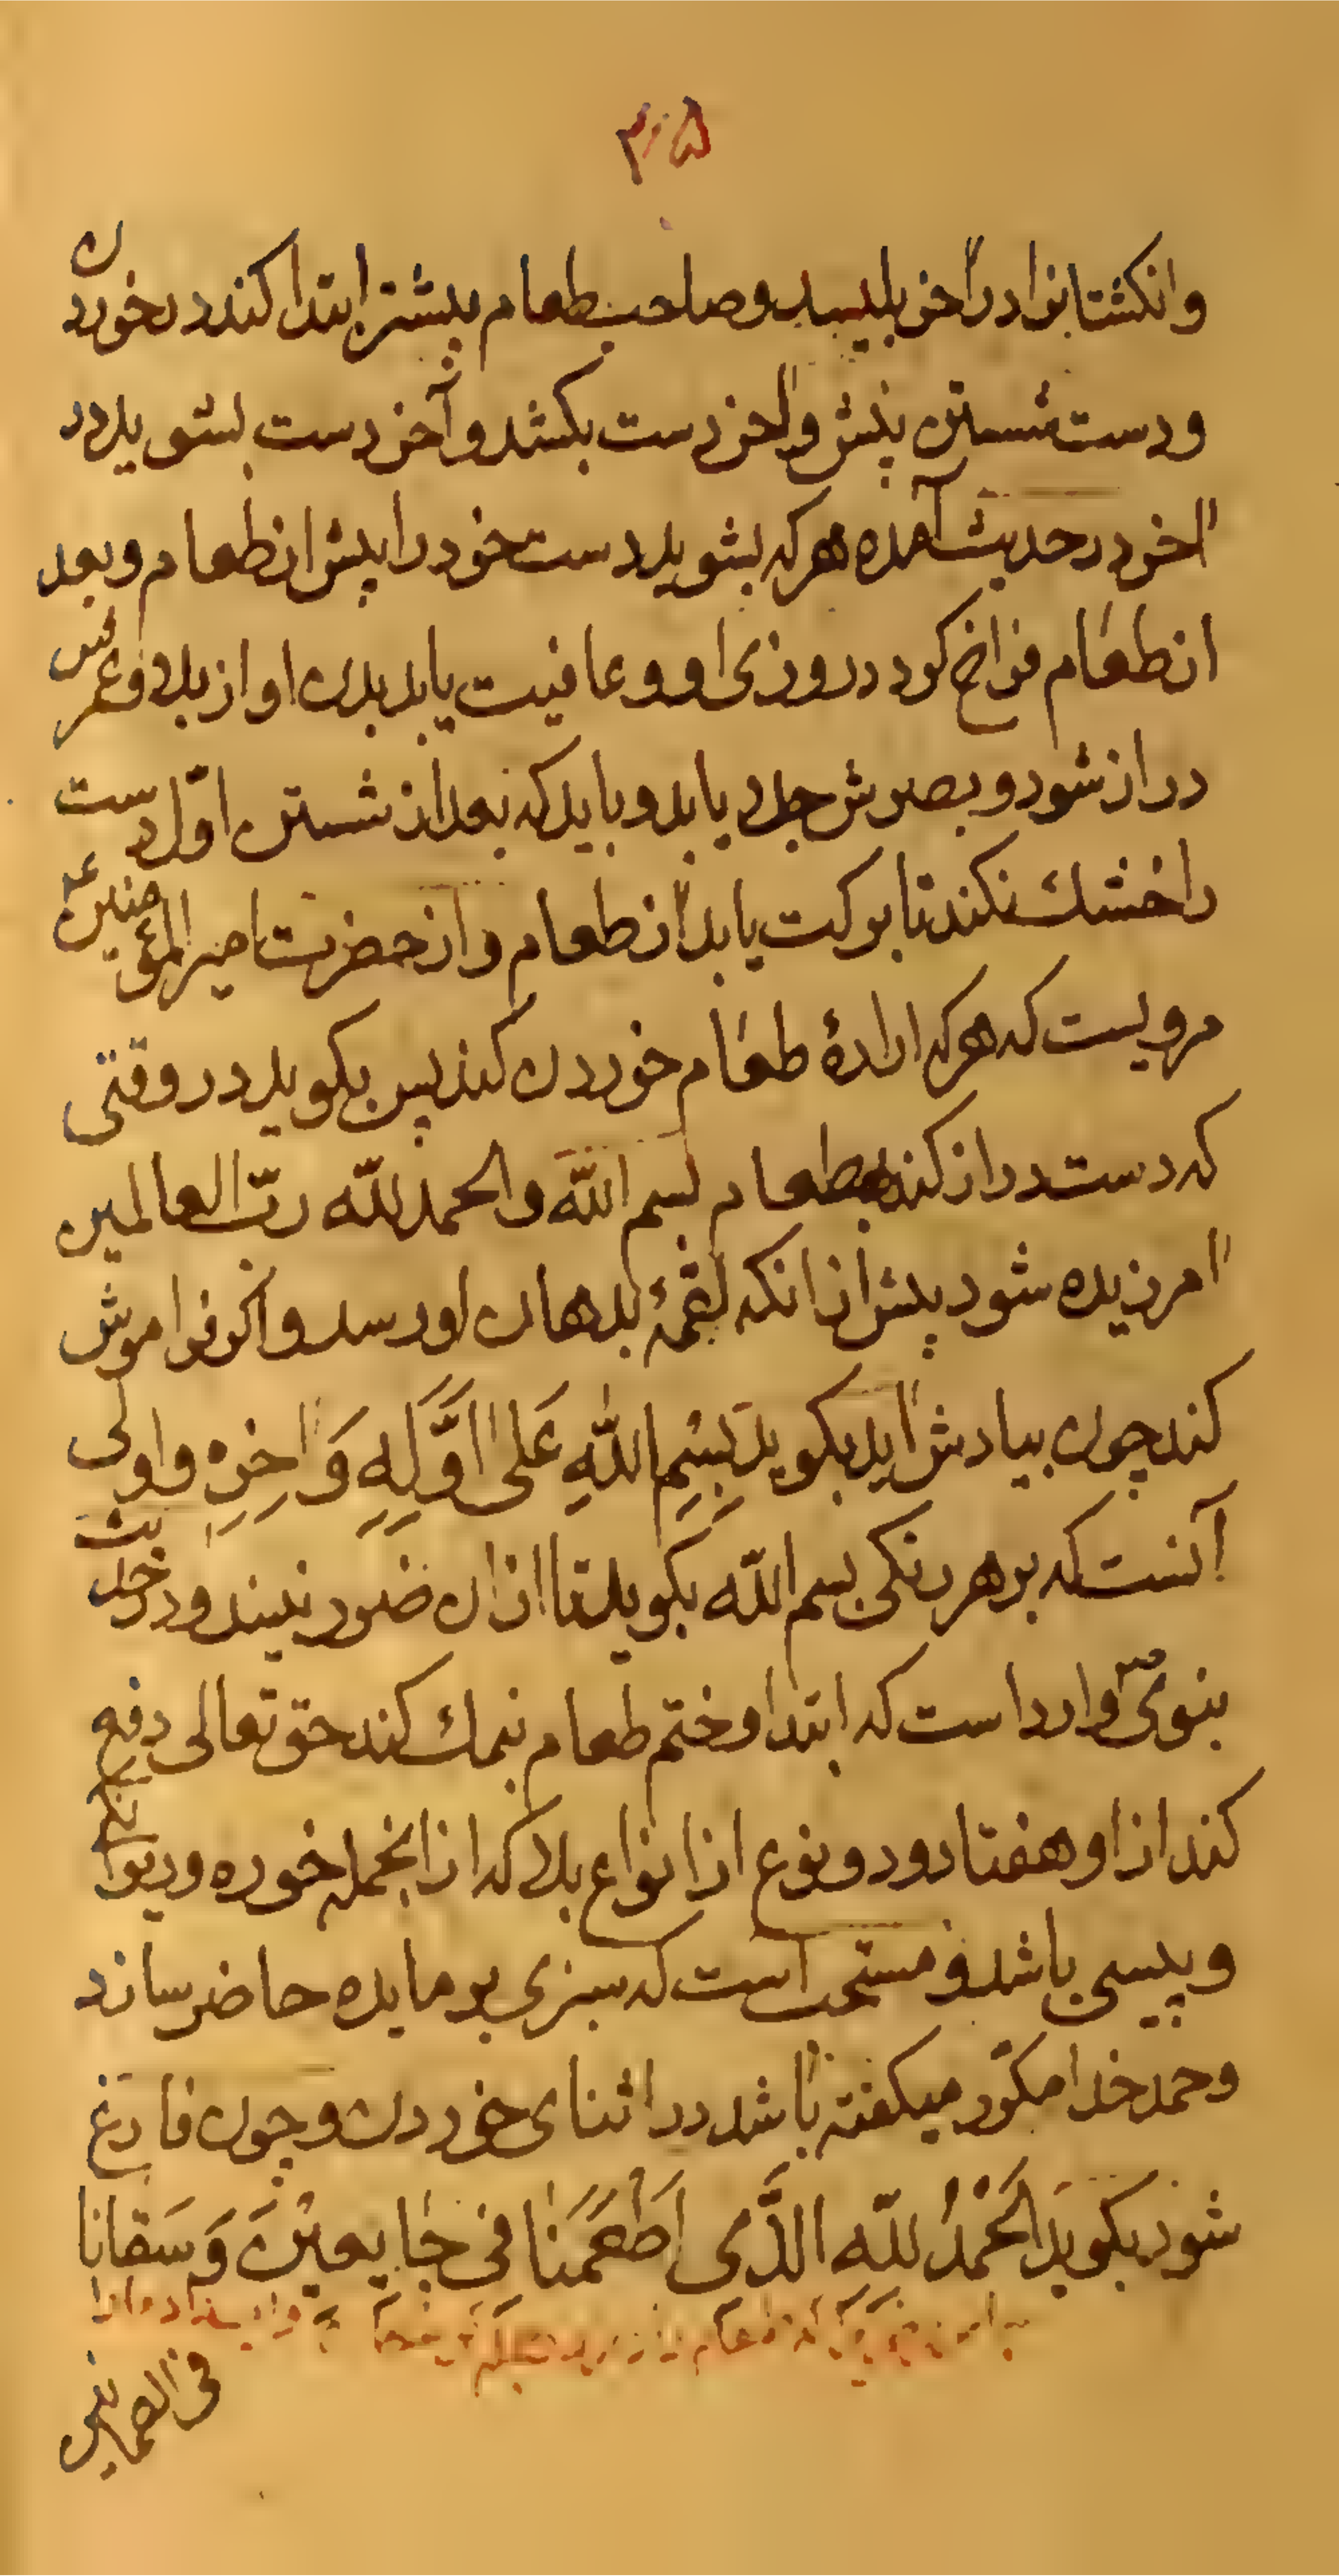 ۳۱۵
وانکشتانرا در اخر بلیسد و صاحب طعام پیشتر ابتدا کند در خوردن
و دست شستن پیش و اخر دست بکشد و آخر دست بشوید در
اخر در حدیث آمده هر که بشوید دست خود را پیش از طعام و بعد
از طعام فراخ کردد روزی او و عافیت یابد بدن او از بلا و عمرش
دراز شود و بصرش جلا یابد و باید که بعد از شستن اوّل دست
را خشك نکند تا برکت یابد از طعام و از حضرت امیر المؤمنین ع
مرویست که هر که ارادهٔ طعام خوردن کند پس بکوید در وقتی
که دست دراز کند بطعام بسم اللّه والحمد للّه ربّ العالمین
امرزیده شود پیش از انکه لقمهٔ بدهان او رسد و اکر فراموش
کند چون بیادش اید بکوید بِسْمِ اللّهِ عَلی اَوَّلِهِ وَ اخِرِهِ و اولی
آنست که بر هر رنکی بسم اللّه بکوید تا از ان ضرر نبیند و در حدیث
نبوی ص وارد است که ابتدا و ختم طعام بنمك کند حق تعالی دفع
کند از او هفتاد و دو نوع از انواع بلا که از انجمله خوره و دیوانکی
و پیسی باشد و مستحب است که سبزی بر مایده حاضر سازند
و حمد خدا مکرّر میکفته باشد در اثنای خوردن و چون فارغ
شود بکوید اَلْحَمْدُ للّهِ الَّذی اَطْعَمَنا فی جایعینَ وَ سَقانا
فی الصماین